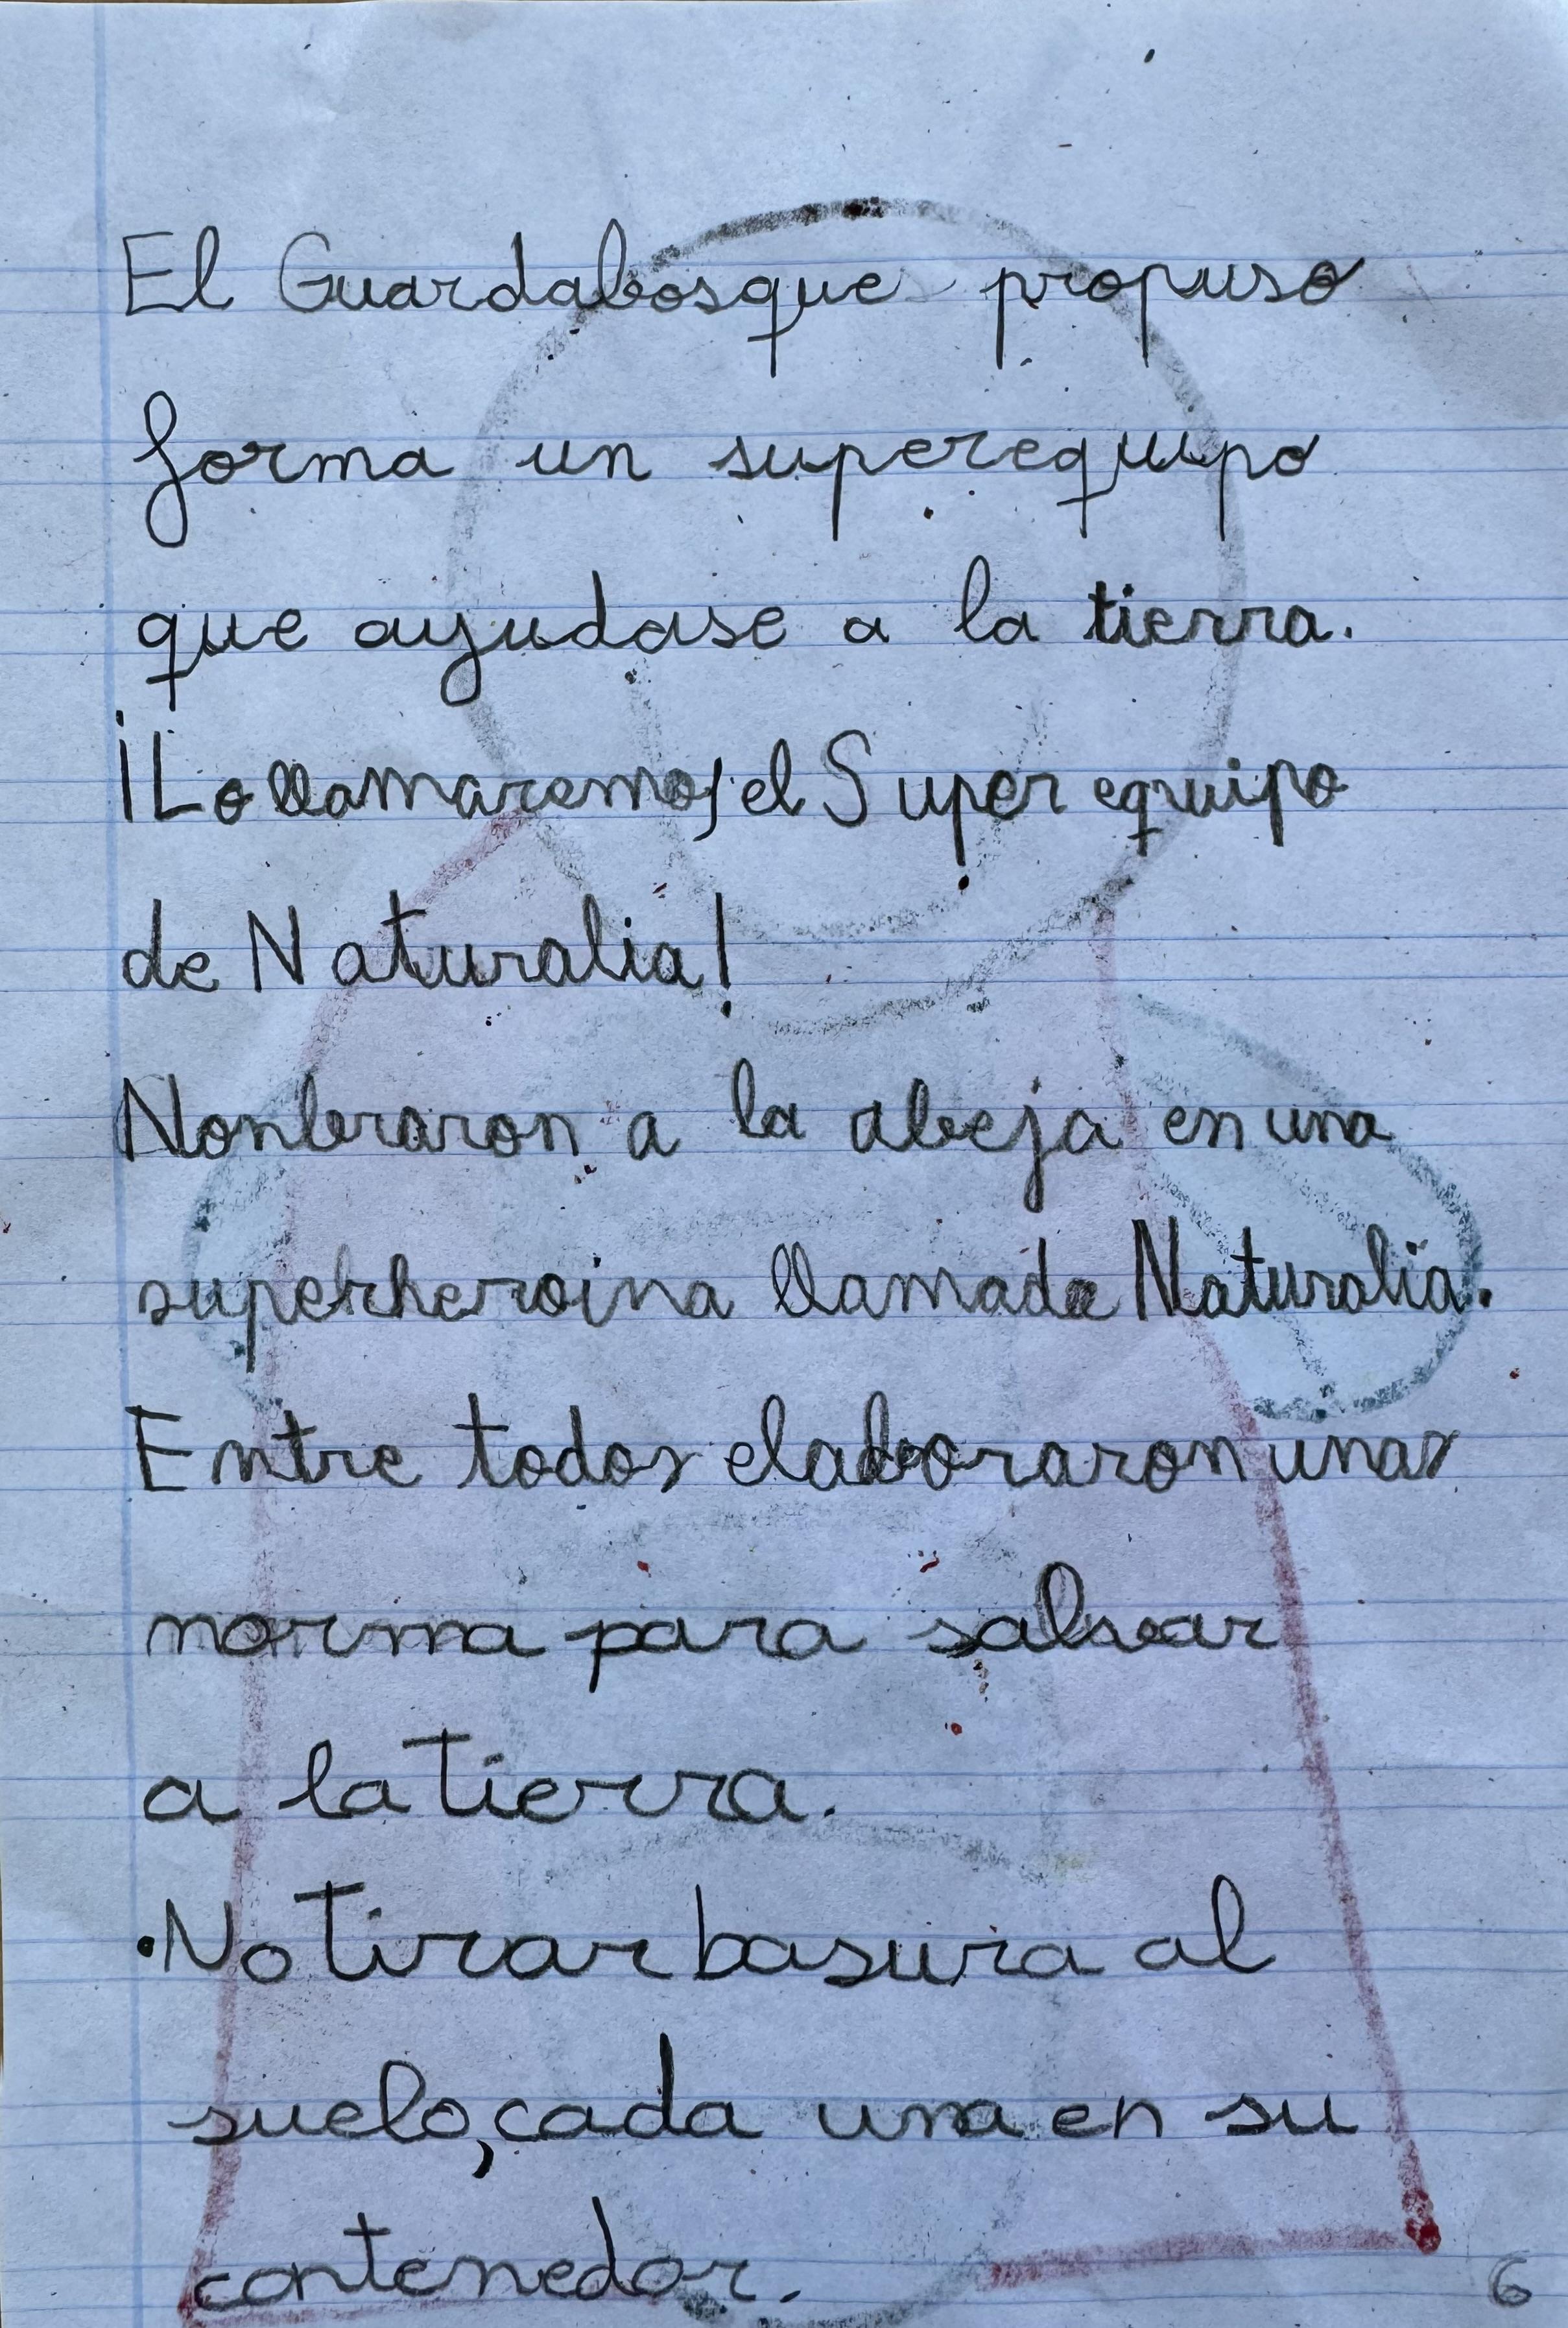 El Guardabosque propuso
forma un superequipo
que ayudase a la tierra.
¡Lo llamaremos el Super equipo
de Naturalia!
Nonbraron a la abeja en una
superheroina llamada Naturalia.
Entre todos elaboraron unas
norma para salvar
a la tierra.
•No tirar basura al
suelo, cada una en su
contenedor.
6